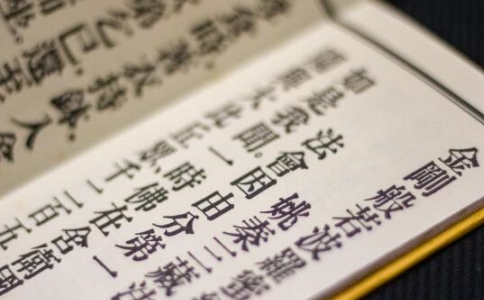 金剛般若波羅蜜
姚秦三藏法
法會因由分第一
如是我聞。一時佛在舍衛國
與大比丘眾。千二百五
食時著衣持鉢入舍
次第乞已還至